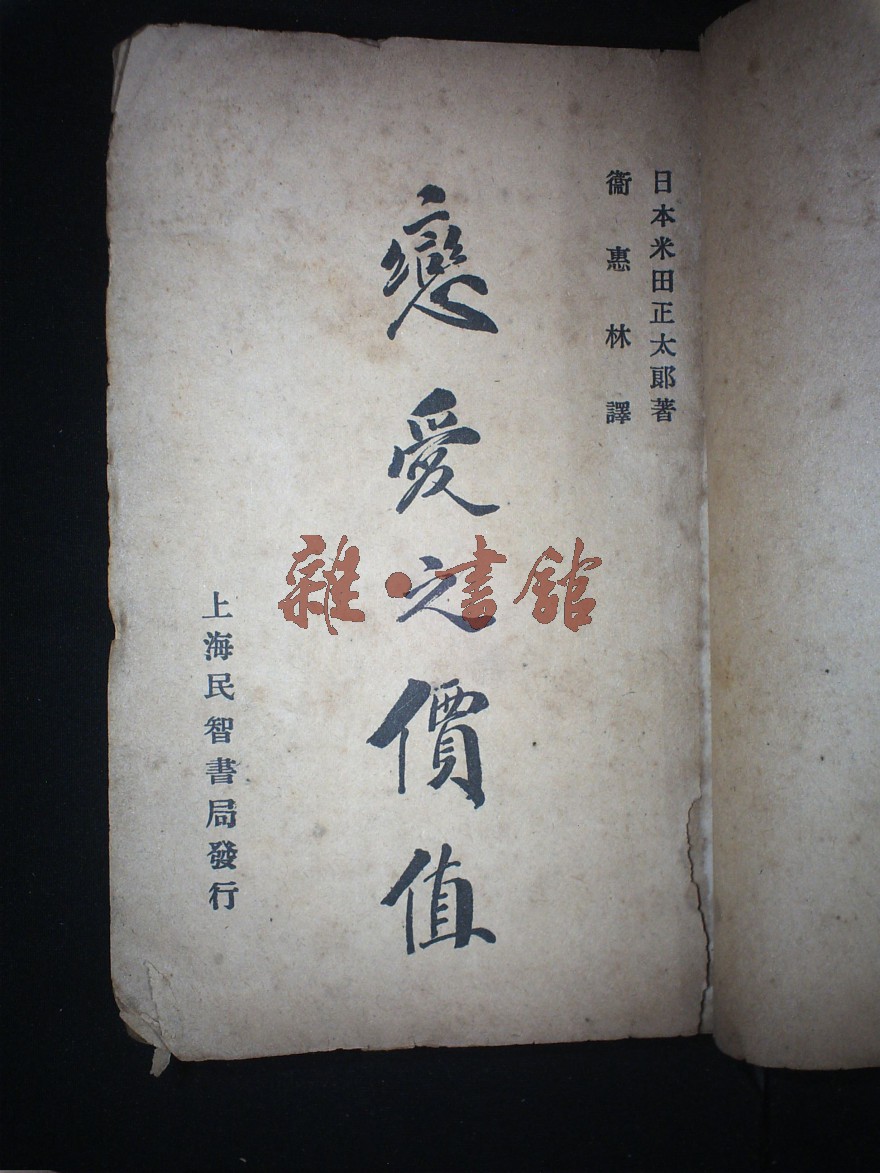 日本米田正太郞著
衞惠林譯
戀愛之價值
上海民智書局發行
雜·書館